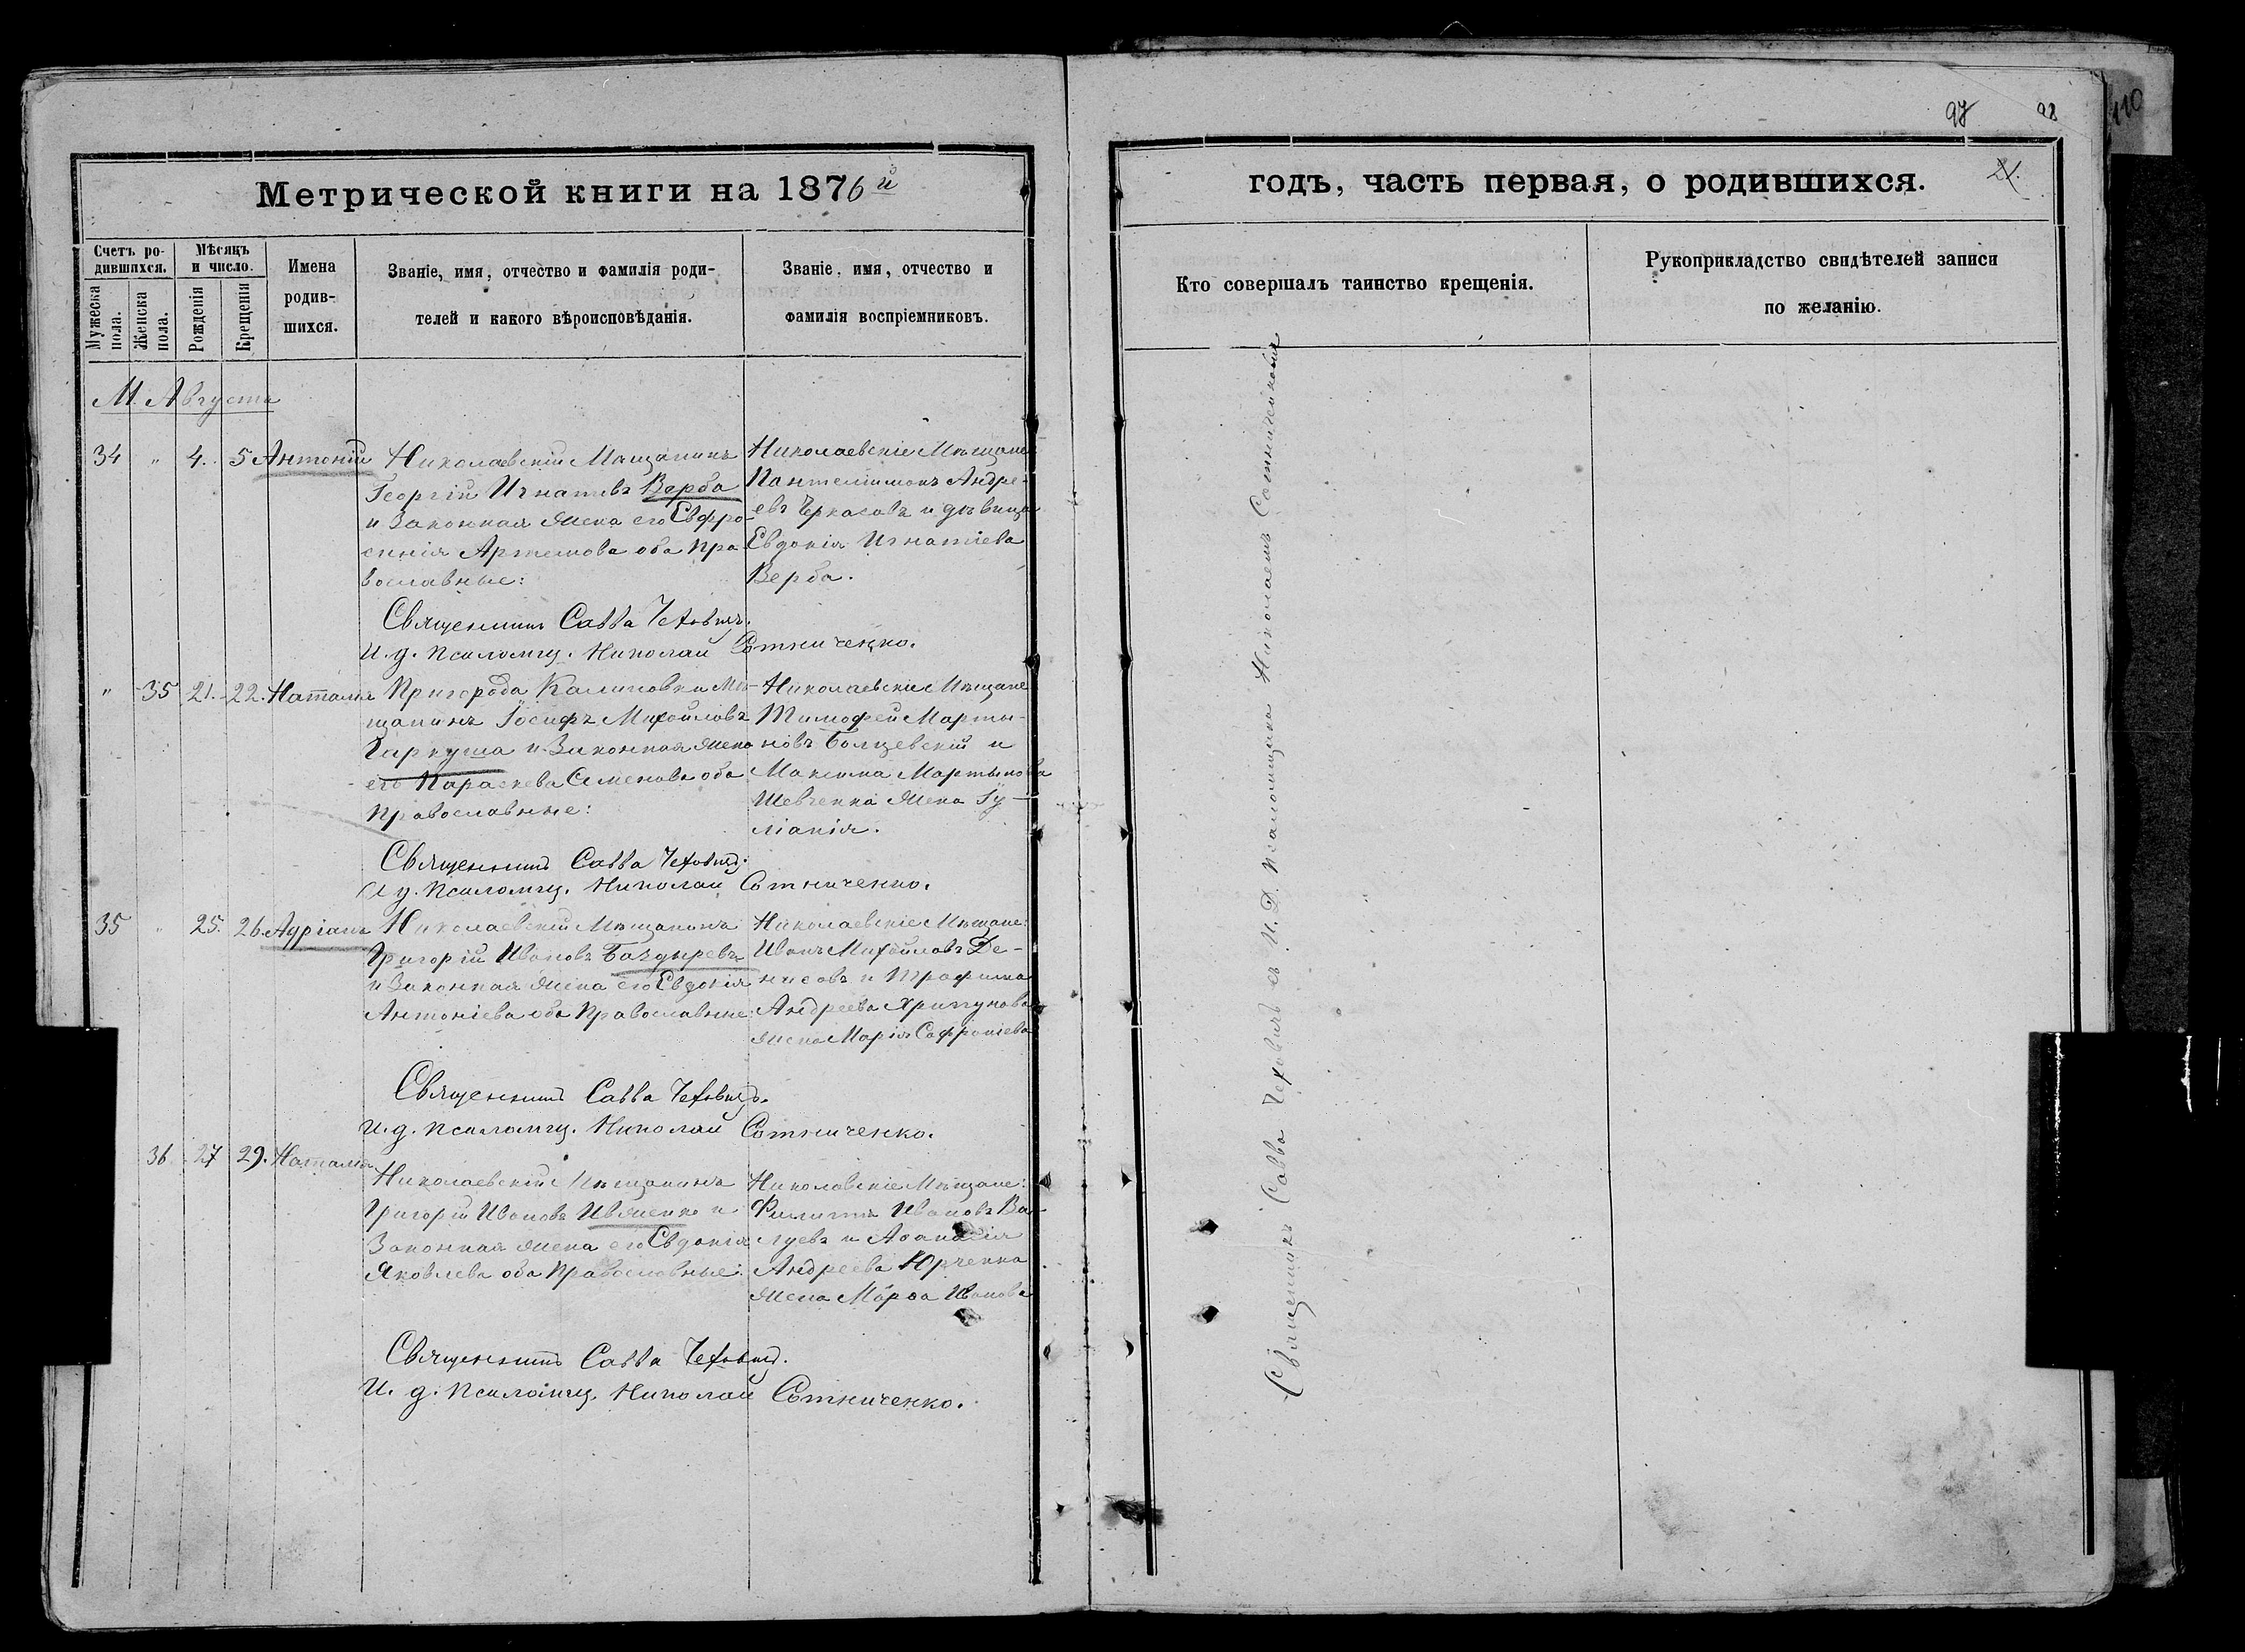 Метрической книги на 1876й
Счетъ родившихся.
Мужеска пола.
Женска пола.
Мѣсяцъ и число.
Рожденія
Крещенія
Имена родив-
шихся.
Званіе, имя, отчество и фамилія роди-
телей и какого вѣроисповѣданія.
Званіе, имя, отчество и
фамилія воспріемниковъ.
М. Августа
34 " 4. 5 Антоній
Николаевскій Мѣщанинъ
Георгій Игнатевъ Верба
и Законная жена его Евфро-
синія Артемова оба пра-
вославные:
Николаевскіе Мѣщане
Пантелимонъ Андре-
евъ Черкасовъ и дѣвица
Евдокія Игнатіева
Верба.
Священникъ Савва Чеховичъ.
И. д. псаломщ. Николай Сотниченко.
" 35 21. 22. Наталія
Пригорода Калиновки Мѣ-
щанинъ Іосифъ Михайловъ
Гаркуша и Законная жена
его Параскева Семенова оба
православные:
Николаевскіе Мѣщане
Тимофей Марты-
новъ Болцевскій и
Максима Мартынова
Шевченка жена Іу-
ліанія.
Священникъ Савва Чеховичъ.
И. д. псаломщ. Николай Сотниченко.
35 " 25. 26. Адріанъ
Николаевскій Мѣщанинъ
Григорій Ивановъ Бандыревъ
и Законная жена его Евдокія
Антоніева оба православные:
Николаевскіе Мѣщане:
Иванъ Михайловъ Де-
нисовъ и Трофима
Андреева Хрипунова
жена Марія Софроніева
Священникъ Савва Чеховичъ.
И. д. псаломщ. Николай Сотниченко.
36. 27 29. Наталія
Николаевскій Мѣщанинъ
Григорій Ивановъ Ивженко и
Законная жена его Евдокія
Яковлева оба православные:
Николавскіе Мѣщане:
Филиппъ Ивановъ Ва-
луевъ и Аѳанасія
Андреева Юрченка
жена Марѳа Иванова
Священникъ Савва Чеховичъ.
И. д. псаломщ. Николай Сотниченко.
97 98
110
21.
годъ, часть первая, о родившихся.
Кто совершалъ таинство крещенія.
Рукоприкладство свидѣтелей записи
по желанію.
Священникъ Савва Чеховичъ съ И. Д. псаломщика Николаемъ Сотниченкомъ